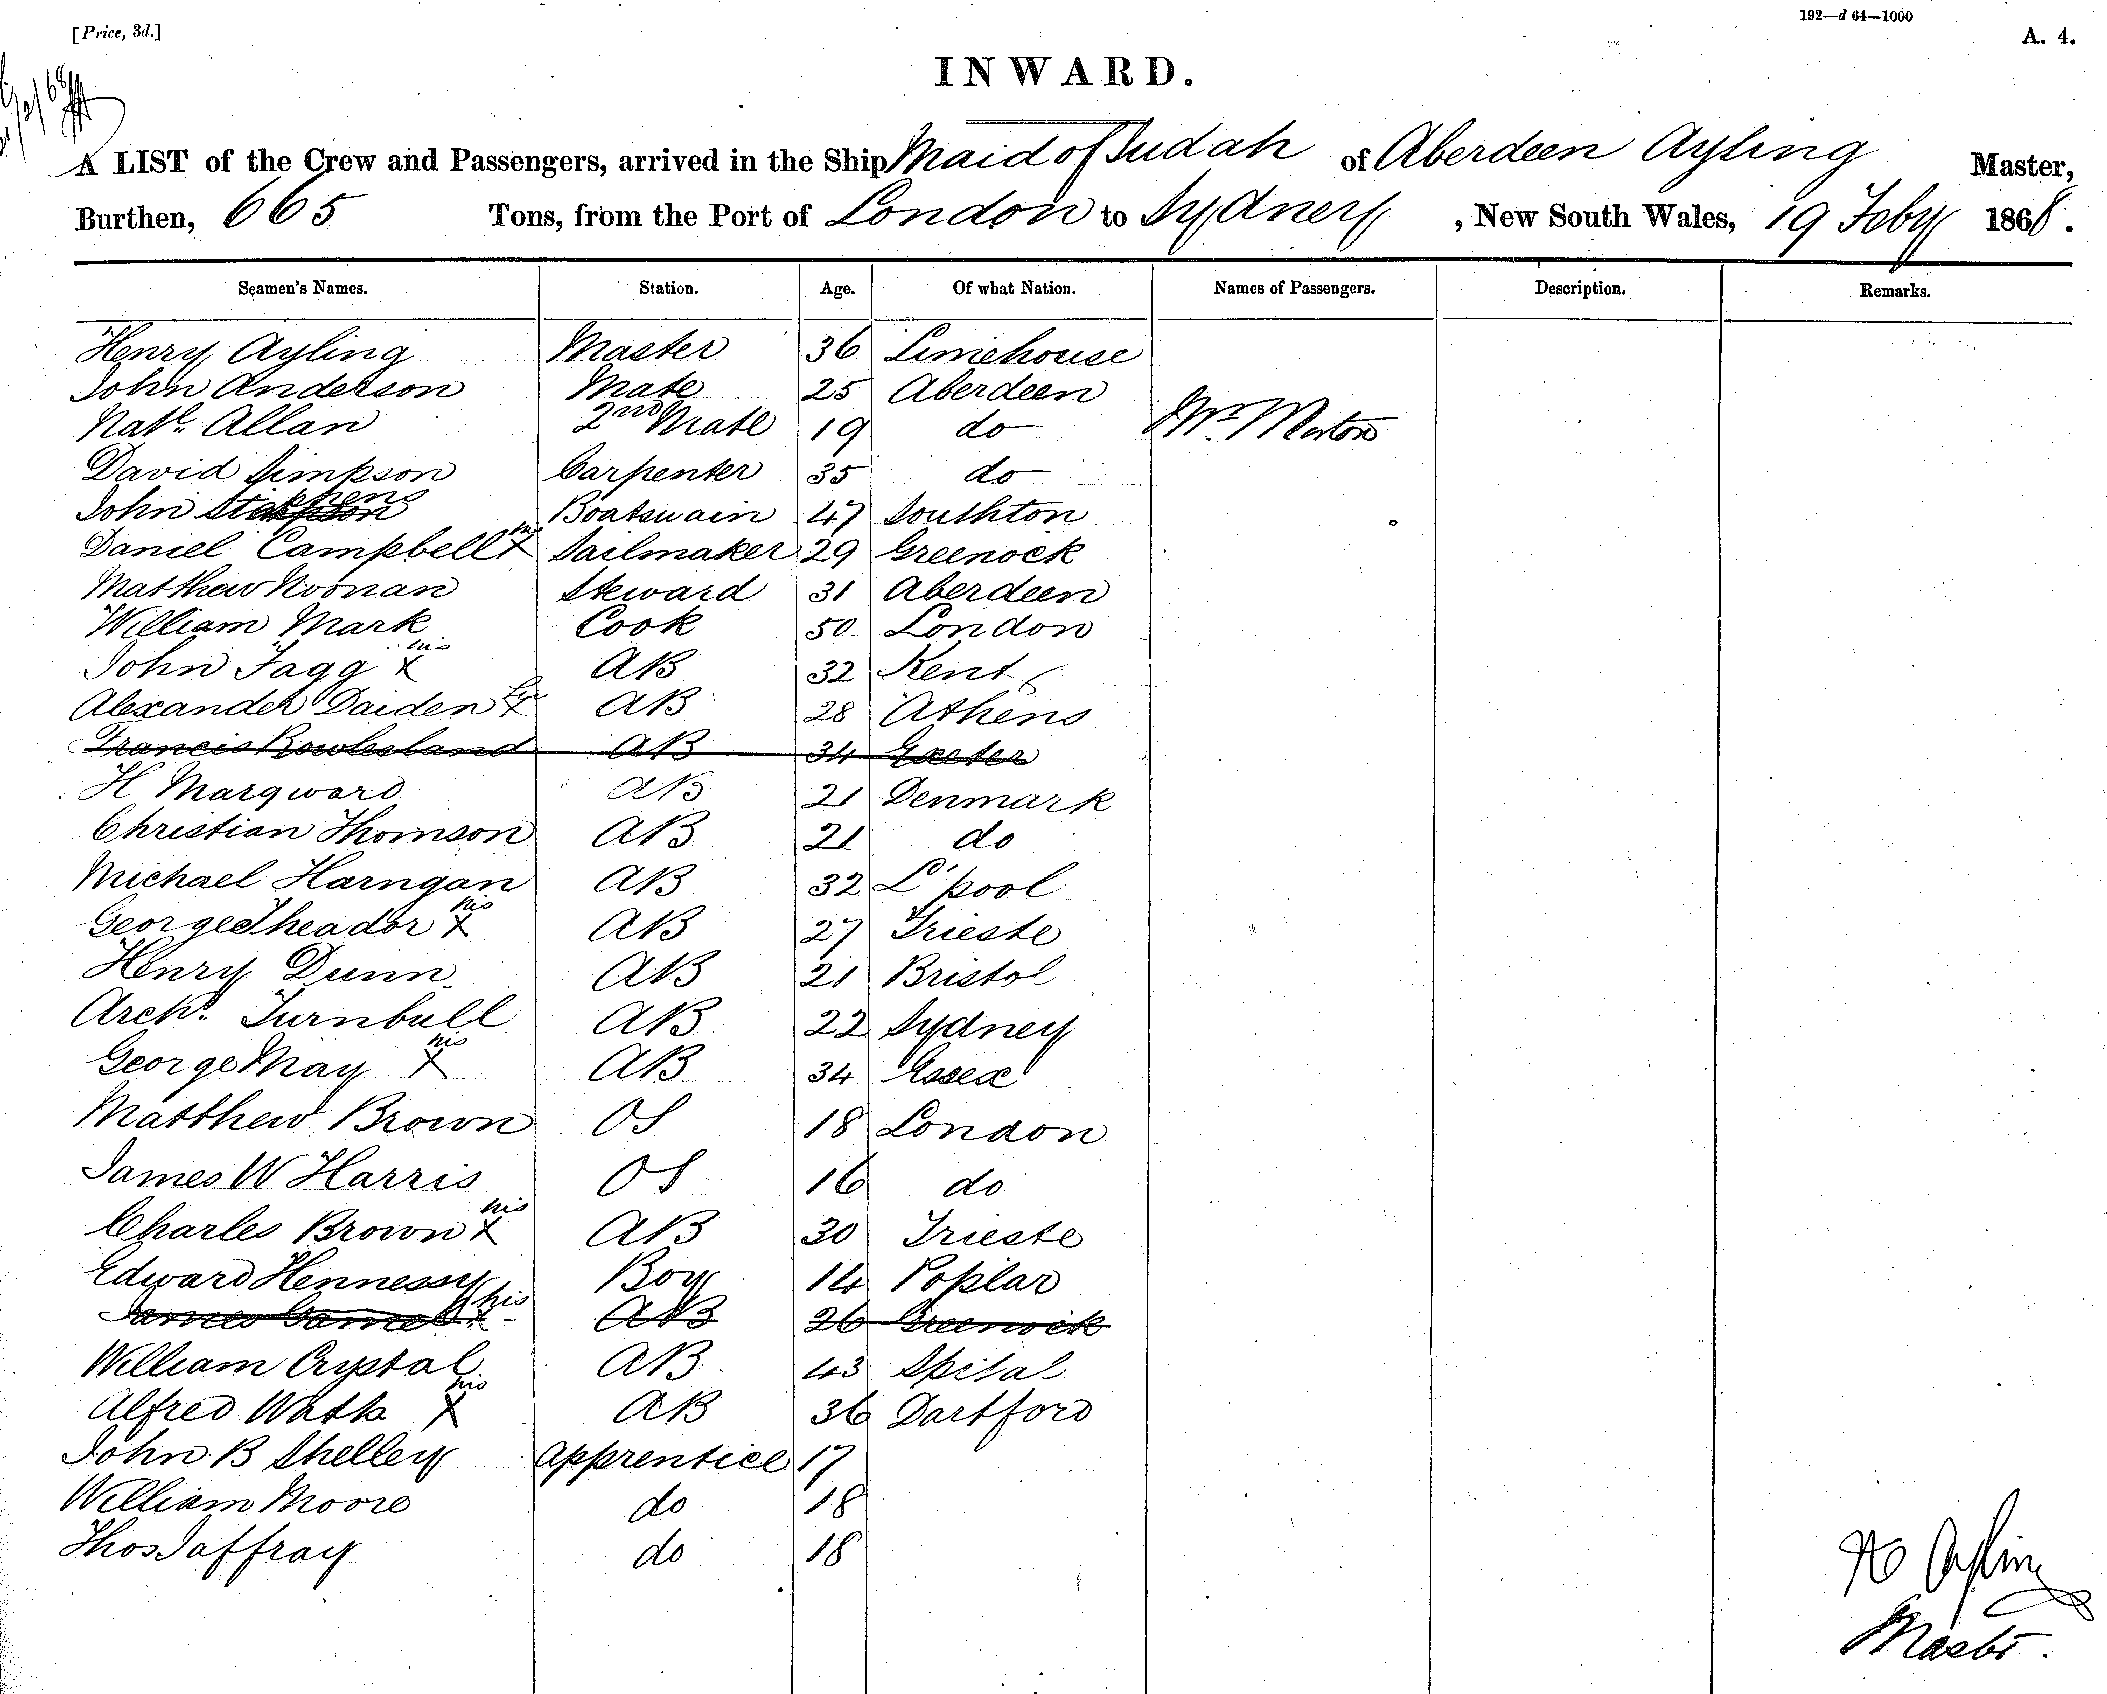 [Price, 3d.]
192—d 64—1000
A. 4.
INWARD.
A LIST of the Crew and Passengers, arrived in the Ship Maid of Judah of Aberdeen Ayling Master,
Burthen, 665 Tons, from the Port of London to Sydney, New South Wales, 19 Feby 1868.
Seamen's Names. Station. Age. Of what Nation. Names of Passengers. Description. Remarks.
Henry Ayling Master 36 Limehouse
John Anderson Mate 25 Aberdeen
Nathl. Allan 2nd Mate 19 do Mr. Morton
David Simpson Carpenter 35 do
John Stephens Boatswain 47 Southton
Daniel Campbell his X Sailmaker 29 Greenock
Matthew Noonan Steward 31 Aberdeen
William Mark Cook 50 London
John Fagg his X AB 32 Kent
Alexander Daiden his X AB 28 Athens
Francis AB 34 Exeter
H Marqward AB 21 Denmark
Christian Thomson AB 21 do
Michael Harngan AB 32 L'pool
George Theador his X AB 27 Trieste
Henry Dunn AB 21 Bristol
Archd. Turnbull AB 22 Sydney
George May his X AB 34 Essex
Matthew Brown OS 18 London
James W Harris OS 16 do
Charles Brown his X AB 30 Trieste
Edward Hennessy Boy 14 Poplar
James his X AB 26 Greenock
William Crystal AB 43 Spital
Alfred Watts his X AB 36 Dartford
John B Shelley Apprentice 17
William Moore do 18
Thos Jaffray do 18
H Ayling
Master.